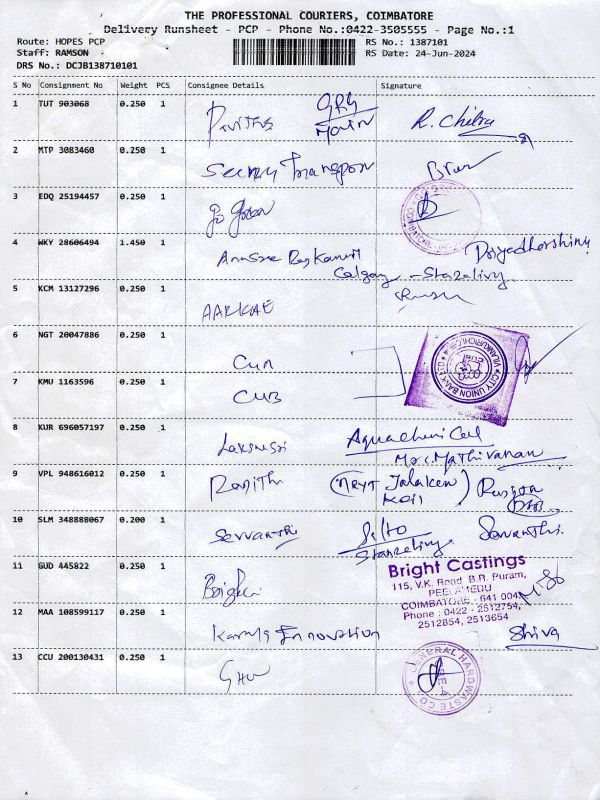 THE PROFESSIONAL COURIERS, COIMBATORE
Delivery Runsheet - PCP - Phone No.:0422-3505555 - Page No.:1
Route: HOPES PCP
RS No.: 1387101
Staff: RAMSON
RS Date: 24-Jun-2024
DRS No.: DCJB138710101
S No Consignment No Weight PCS Consignee Details Signature
1 TUT 903068 0.250 1 GRG Main R. Chitra
2 MTP 3083460 0.250 1 Transport
3 EDQ 25194457 0.250 1
4 WKY 28606494 1.450 1 Priyadharshini
5 KCM 13127296 0.250 1
6 NGT 20047886 0.250 1 CUB
CITY UNION BANK LTD
7 KMU 1163596 0.250 1 CUB
8 KUR 696057197 0.250 1 Mr. Mathivanan
9 VPL 948616012 0.250 1 Ranjith
10 SLM 348888067 0.200 1 Sevvanthi
11 GUD 445822 0.250 1
Bright Castings
115, V.K. Road, B.R. Puram,
PEELAMEDU
COIMBATORE - 641 004
Phone : 0422 - 2512754,
2512854, 2513654
12 MAA 108599117 0.250 1 Innovation Shiva
13 CCU 200130431 0.250 1 GHW
GENERAL HARDWASTE CO